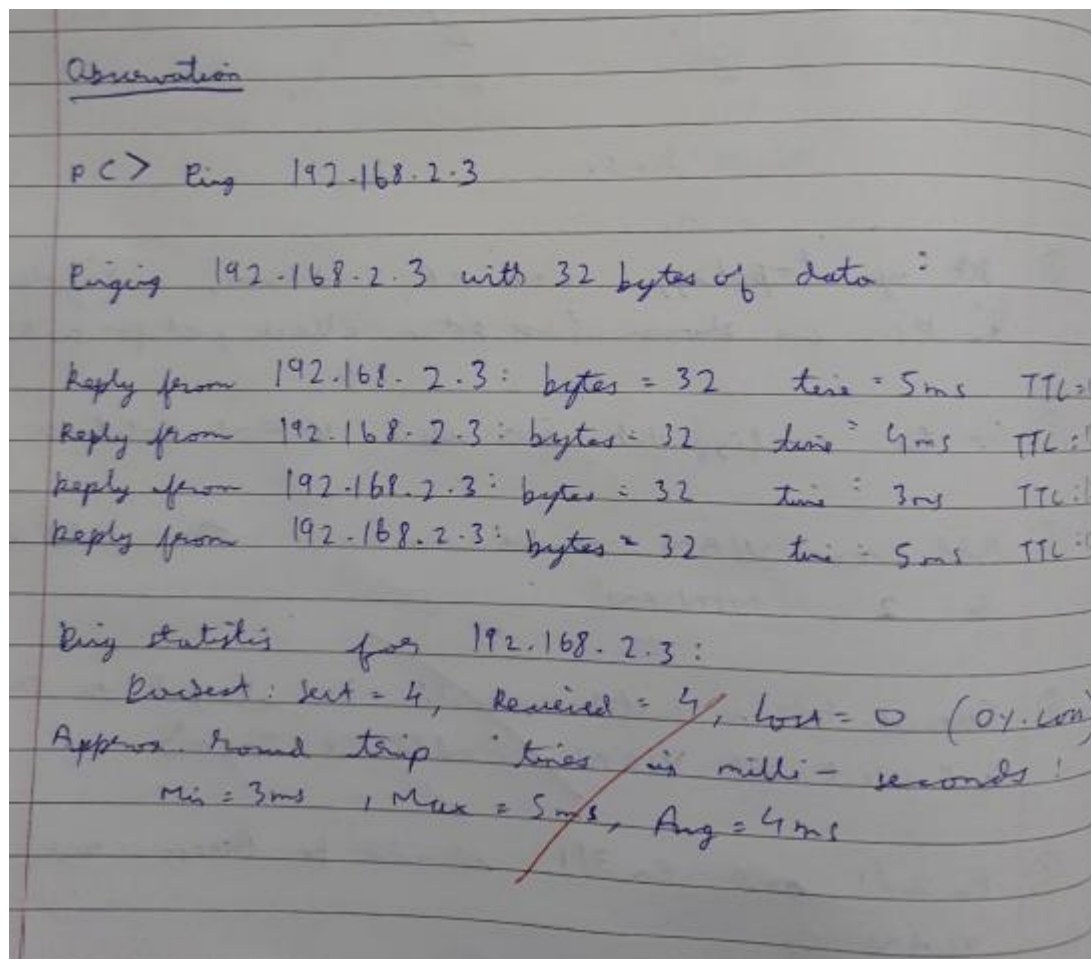 Observation
PC> Ping 192.168.2.3
Pinging 192.168.2.3 with 32 bytes of data :
Reply from 192.168.2.3: bytes = 32 time = 5ms TTL=
Reply from 192.168.2.3: bytes = 32 time = 4ms TTL=
Reply from 192.168.2.3: bytes = 32 time = 3ms TTL=
Reply from 192.168.2.3: bytes = 32 time = 5ms TTL=
Ping statistics for 192.168.2.3:
: Sent = 4, Received = 4, Lost = 0 (0%
Approx. round trip times in milli-seconds:
Min = 3ms, Max = 5ms, Avg = 4ms